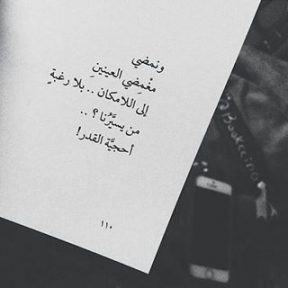 ونمضي
مغْمِضِي العينينِ
إلى اللامكان .. بلا رغبةٍ
من يسيّرُنا ؟ ..
أحجيَّة القدر !
١١٠
@Bookccino